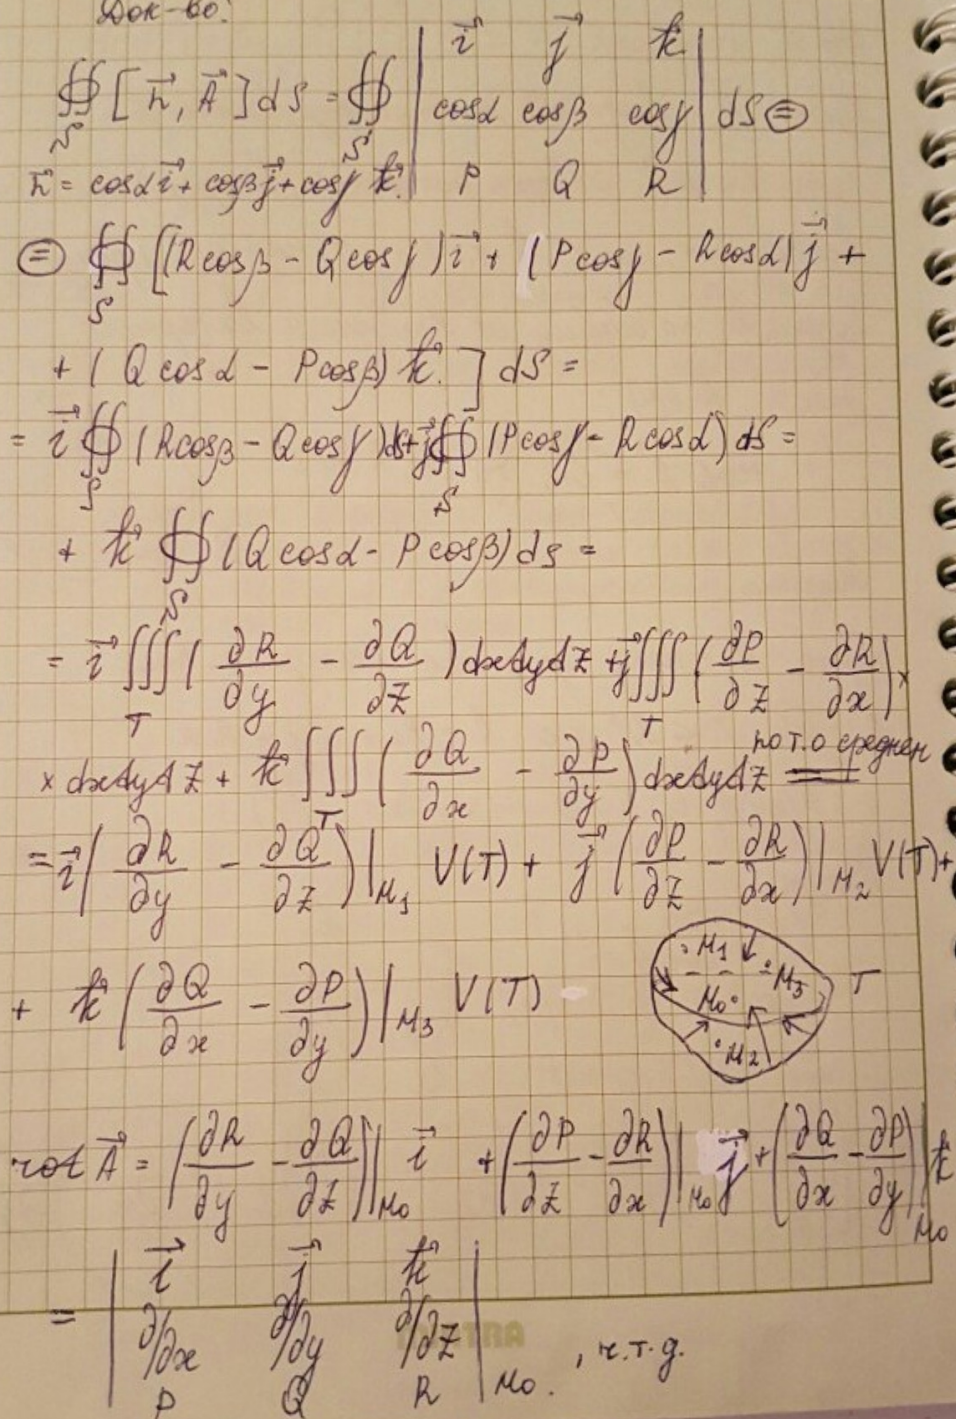 Док-во:
∯_S [n⃗, A⃗] dS = ∯_S | i⃗ j⃗ k⃗ ; cosα cosβ cosγ ; P Q R | dS ⊜
n⃗ = cosα i⃗ + cosβ j⃗ + cosγ k⃗.
⊜ ∯_S [(R cosβ − Q cosγ) i⃗ + (P cosγ − R cosα) j⃗ +
+ (Q cosα − P cosβ) k⃗.] dS =
= i⃗ ∯_S (R cosβ − Q cosγ) dS + j⃗ ∯_S (P cosγ − R cosα) dS =
+ k⃗ ∯_S (Q cosα − P cosβ) dS =
= i⃗ ∭_T (∂R/∂y − ∂Q/∂z) dxdydz + j⃗ ∭_T (∂P/∂z − ∂R/∂x) ×
× dxdydz + k⃗ ∭_T (∂Q/∂x − ∂P/∂y) dxdydz = по т. о среднем
= i⃗ (∂R/∂y − ∂Q/∂z)|_M₁ V(T) + j⃗ (∂P/∂z − ∂R/∂x)|_M₂ V(T) +
+ k⃗ (∂Q/∂x − ∂P/∂y)|_M₃ V(T)
M₁ M₃ T
M₀
M₂
rot A⃗ = (∂R/∂y − ∂Q/∂z)|_M₀ i⃗ + (∂P/∂z − ∂R/∂x)|_M₀ j⃗ + (∂Q/∂x − ∂P/∂y)|_M₀ k⃗
= | i⃗ j⃗ k⃗ ; ∂/∂x ∂/∂y ∂/∂z ; P Q R |_M₀. , ч.т.д.